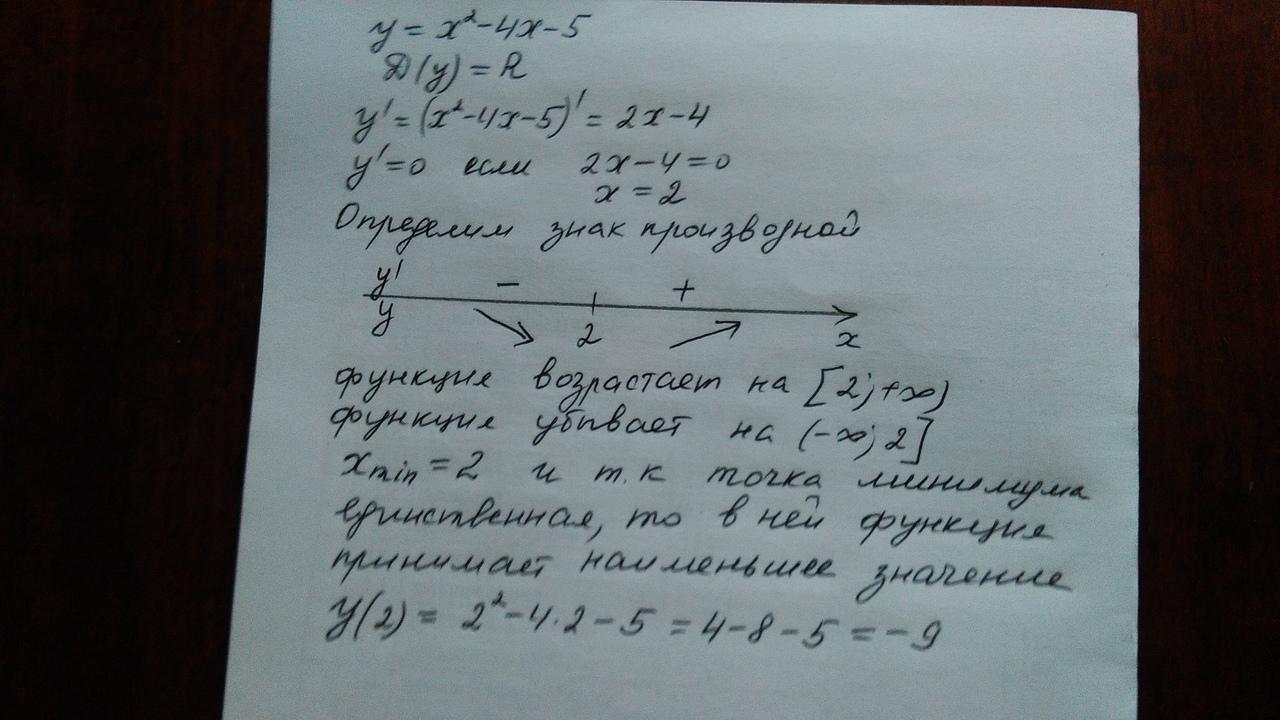 y = x² - 4x - 5
D(y) = R
y' = (x² - 4x - 5)' = 2x - 4
y' = 0 если 2x - 4 = 0
x = 2
Определим знак производной
y' - +
y 2 x
функция возрастает на [2; +∞)
функция убывает на (-∞; 2]
xmin = 2 и т.к точка минимума
единственная, то в ней функция
принимает наименьшее значение
y(2) = 2² - 4·2 - 5 = 4 - 8 - 5 = -9